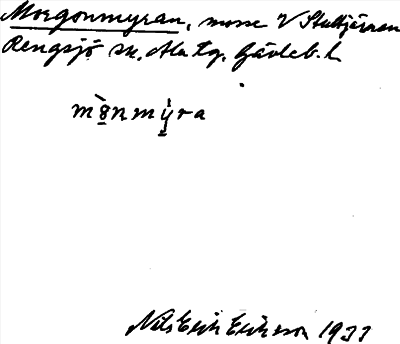 Morgonmyran, mosse V Stuttjärnen
Rengsjö sn. Ala tg. Gävleb. l.
mò̱nmỳ̱ra
Nils Erik Eriksson 1933